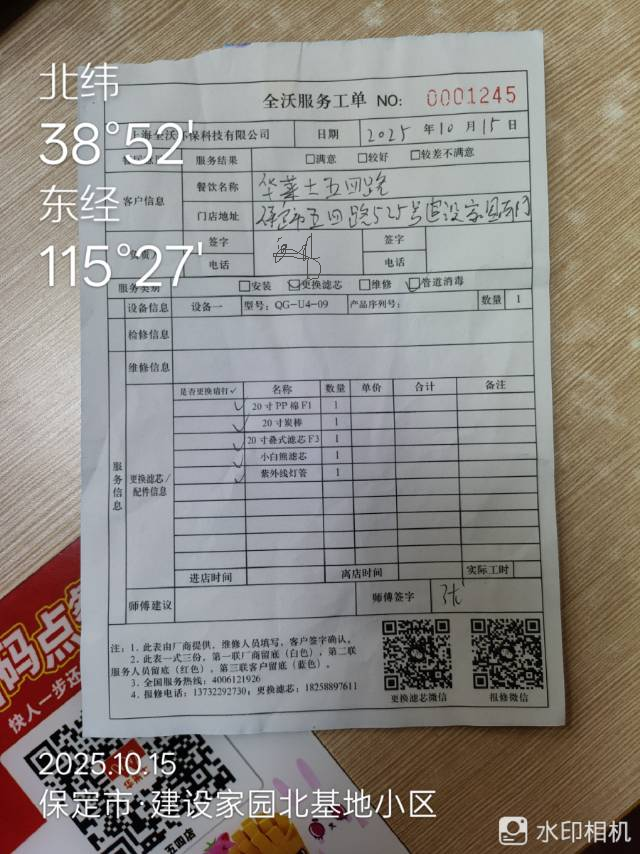 北纬
38°52'
东经
115°27'
全沃服务工单 NO: 0001245
上海全沃环保科技有限公司 日期 2025 年 10 月 15 日
服务结果 □满意 □较好 □较差不满意
客户信息 餐饮名称 华莱士五四路
门店地址 保定市五四路525号建设家园南门
签字 签字
电话 电话
服务类别 □安装 ☑更换滤芯 □维修 ☑管道消毒
设备信息 设备一 型号: QG-U4-09 产品序列号: 数量 1
检修信息
服务信息
维修信息
更换滤芯/配件信息
是否更换请打✓ 名称 数量 单价 合计 备注
✓ 20寸PP棉F1 1
✓ 20寸炭棒 1
✓ 20寸叠式滤芯F3 1
✓ 小白熊滤芯 1
✓ 紫外线灯管 1
进店时间 离店时间 实际工时
师傅建议 师傅签字 张
注: 1. 此表由厂商提供, 维修人员填写, 客户签字确认。
2. 此表一式三份, 第一联厂商留底 (白色), 第二联
服务人员留底 (红色), 第三联客户留底 (蓝色)。
3. 全国服务热线: 4006121926
4. 报修电话: 13732292730; 更换滤芯: 18258897611
更换滤芯微信 报修微信
码点
快人一步还
华莱士
五四店
2025.10.15
保定市·建设家园北基地小区
水印相机